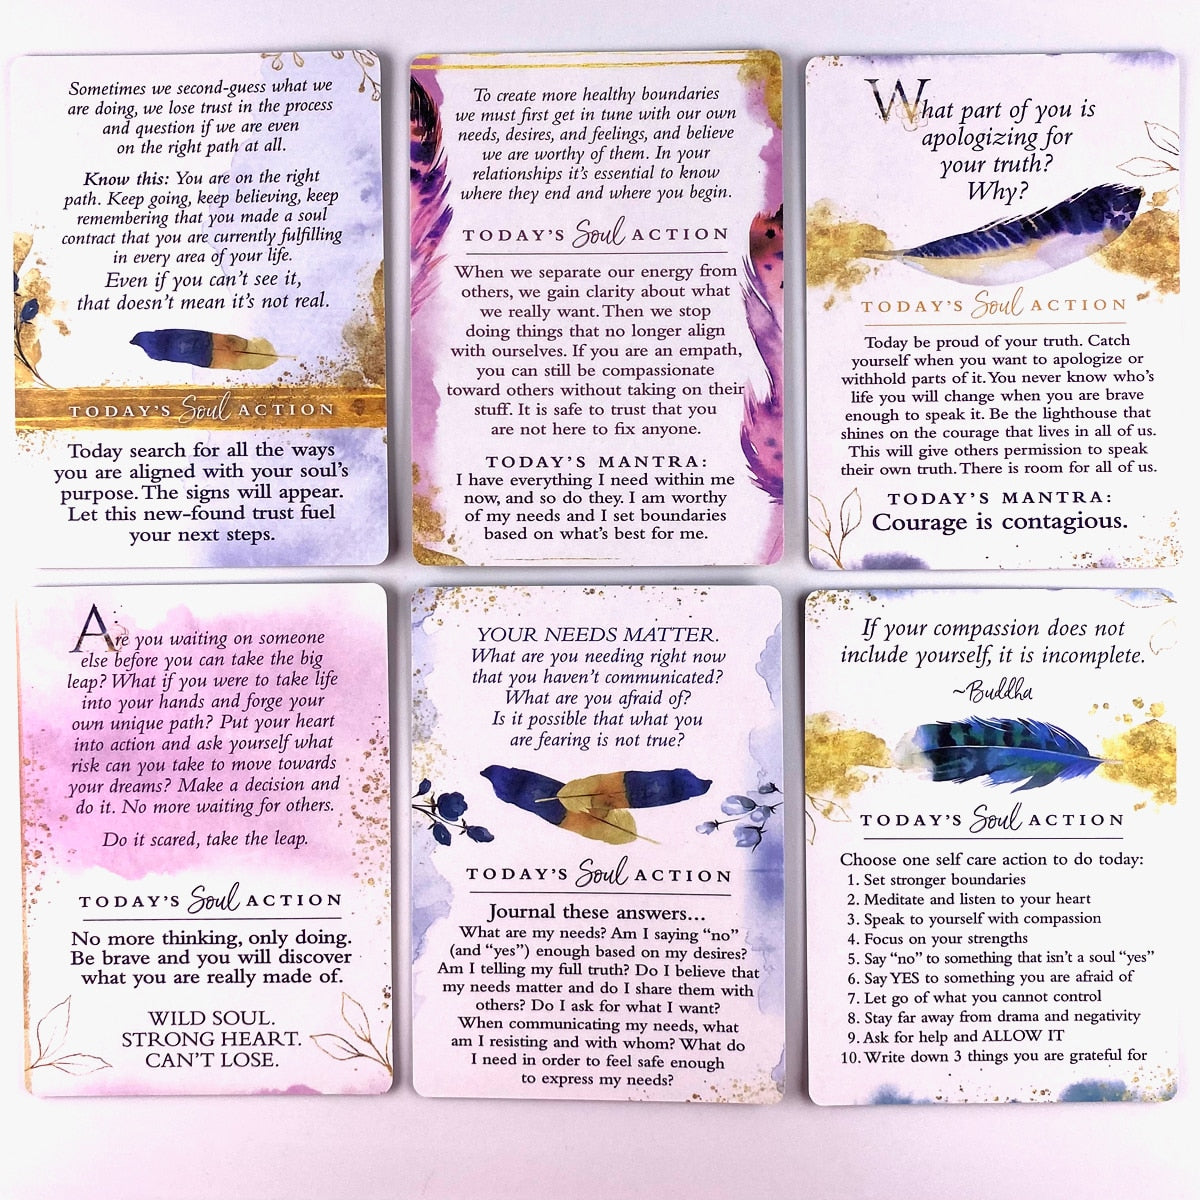 Sometimes we second-guess what we
are doing, we lose trust in the process
and question if we are even
on the right path at all.
Know this: You are on the right
path. Keep going, keep believing, keep
remembering that you made a soul
contract that you are currently fulfilling
in every area of your life.
Even if you can't see it,
that doesn't mean it's not real.
TODAY'S Soul ACTION
Today search for all the ways
you are aligned with your soul's
purpose. The signs will appear.
Let this new-found trust fuel
your next steps.
To create more healthy boundaries
we must first get in tune with our own
needs, desires, and feelings, and believe
we are worthy of them. In your
relationships it's essential to know
where they end and where you begin.
TODAY'S Soul ACTION
When we separate our energy from
others, we gain clarity about what
we really want. Then we stop
doing things that no longer align
with ourselves. If you are an empath,
you can still be compassionate
toward others without taking on their
stuff. It is safe to trust that you
are not here to fix anyone.
TODAY'S MANTRA:
I have everything I need within me
now, and so do they. I am worthy
of my needs and I set boundaries
based on what's best for me.
What part of you is
apologizing for
your truth?
Why?
TODAY'S Soul ACTION
Today be proud of your truth. Catch
yourself when you want to apologize or
withhold parts of it. You never know who's
life you will change when you are brave
enough to speak it. Be the lighthouse that
shines on the courage that lives in all of us.
This will give others permission to speak
their own truth. There is room for all of us.
TODAY'S MANTRA:
Courage is contagious.
Are you waiting on someone
else before you can take the big
leap? What if you were to take life
into your hands and forge your
own unique path? Put your heart
into action and ask yourself what
risk can you take to move towards
your dreams? Make a decision and
do it. No more waiting for others.
Do it scared, take the leap.
TODAY'S Soul ACTION
No more thinking, only doing.
Be brave and you will discover
what you are really made of.
WILD SOUL.
STRONG HEART.
CAN'T LOSE.
YOUR NEEDS MATTER.
What are you needing right now
that you haven't communicated?
What are you afraid of?
Is it possible that what you
are fearing is not true?
TODAY'S Soul ACTION
Journal these answers...
What are my needs? Am I saying "no"
(and "yes") enough based on my desires?
Am I telling my full truth? Do I believe that
my needs matter and do I share them with
others? Do I ask for what I want?
When communicating my needs, what
am I resisting and with whom? What do
I need in order to feel safe enough
to express my needs?
If your compassion does not
include yourself, it is incomplete.
~Buddha
TODAY'S Soul ACTION
Choose one self care action to do today:
1. Set stronger boundaries
2. Meditate and listen to your heart
3. Speak to yourself with compassion
4. Focus on your strengths
5. Say "no" to something that isn't a soul "yes"
6. Say YES to something you are afraid of
7. Let go of what you cannot control
8. Stay far away from drama and negativity
9. Ask for help and ALLOW IT
10. Write down 3 things you are grateful for